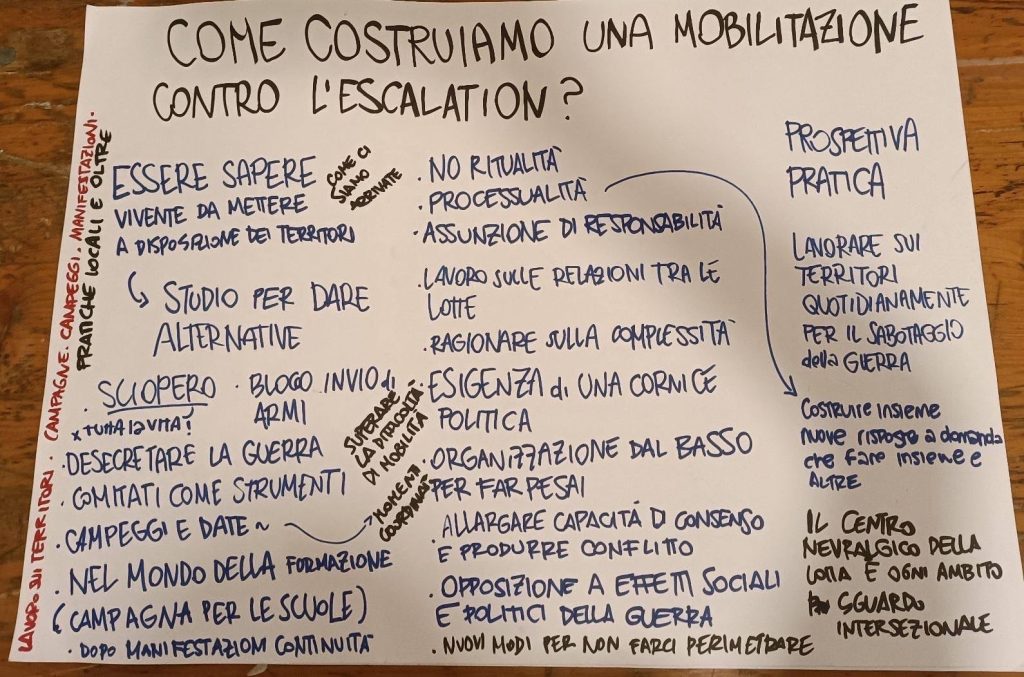 COME COSTRUIAMO UNA MOBILITAZIONE
CONTRO L'ESCALATION?
LAVORO SUI TERRITORI · CAMPAGNE · CAMPEGGI · MANIFESTAZIONI ·
PRATICHE LOCALI E OLTRE
ESSERE SAPERE
VIVENTE DA METTERE
A DISPOSIZIONE DEI TERRITORI
COME CI
SIAMO
ARRIVATE
↳ STUDIO PER DARE
ALTERNATIVE
· SCIOPERO
x TUTTA la VITA!
· BLOCO INVIO di
ARMI
· DESECRETARE LA GUERRA
· COMITATI COME STRUMENTI
· CAMPEGGI E DATE ~
→ MOMENTI
COORDINAT
SUPERARE
LA DIFFICOLTÀ
DI MOBILITÀ
· NEL MONDO DELLA FORMAZIONE
(CAMPAGNA PER LE SCUOLE)
· DOPO MANIFESTAZIONI CONTINUITÀ
· NO RITUALITÀ
· PROCESSUALITÀ
· ASSUNZIONE DI RESPONSABILITÀ
LAVORO SULLE RELAZIONI TRA LE
LOTTE
· RAGIONARE SULLA COMPLESSITÀ
· ESIGENZA di UNA CORNICE
POLITICA
· ORGANIZZAZIONE DAL BASSO
PER FAR PESAI
· ALLARGARE CAPACITÀ DI CONSENSO
E PRODURRE CONFLITTO
· OPPOSIZIONE A EFFETTI SOCIALI
E POLITICI DELLA GUERRA
· NUOVI MODI PER NON FARCI PERIMETRARE
PROSPETTIVA
PRATICA
LAVORARE SUI
TERRITORI
QUOTIDIANAMENTE
PER IL SABOTAGGIO
della GUERRA
Costruire insieme
nuove risposte a domanda
che fare insieme e
ALTRE
IL CENTRO
NEVRALGICO DELLA
LOTTA È OGNI AMBITO
SGUARDO
INTERSEZIONALE